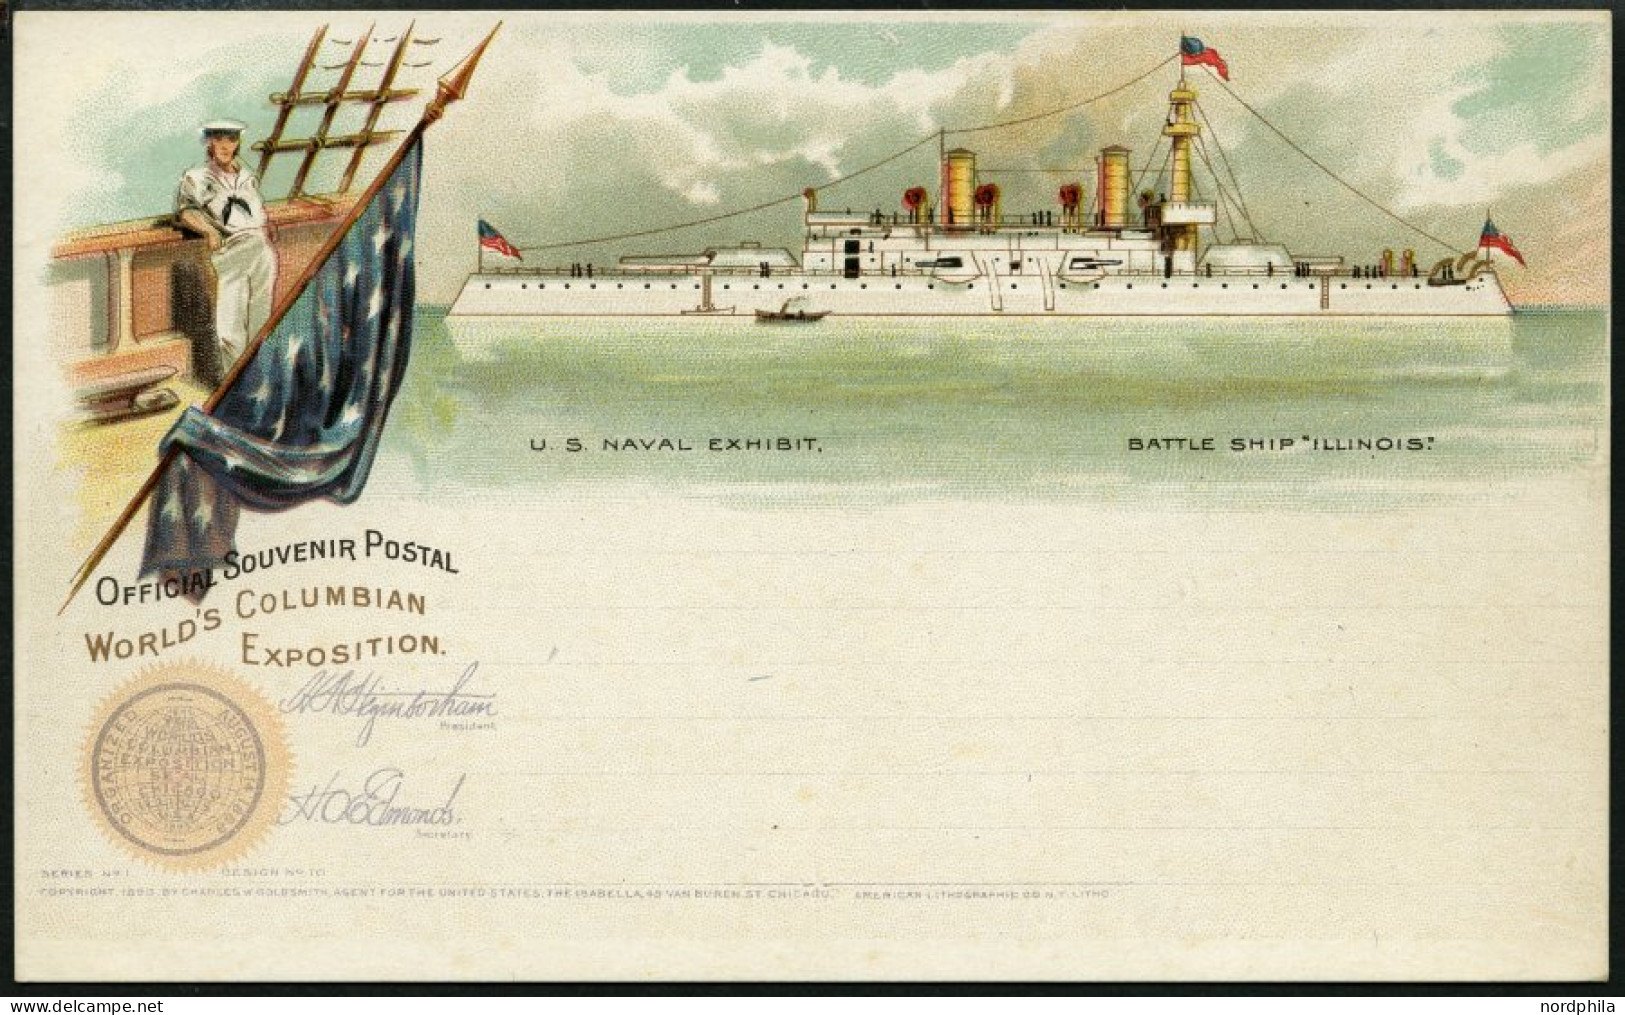 U. S. NAVAL EXHIBIT,
BATTLE SHIP "ILLINOIS."
OFFICIAL SOUVENIR POSTAL
WORLD'S COLUMBIAN
EXPOSITION.
H N Higinbotham
President
H. O. Edmonds.
Secretary
ORGANIZED AUGUST 14 1889
WORLD'S
COLUMBIAN
EXPOSITION
SEAL
CHICAGO
SERIES No 1 DESIGN No 10
COPYRIGHT, 1893, BY CHARLES W. GOLDSMITH, AGENT FOR THE UNITED STATES, THE ISABELLA, 48 VAN BUREN ST. CHICAGO. AMERICAN LITHOGRAPHIC CO N.Y. LITHO
nordphila